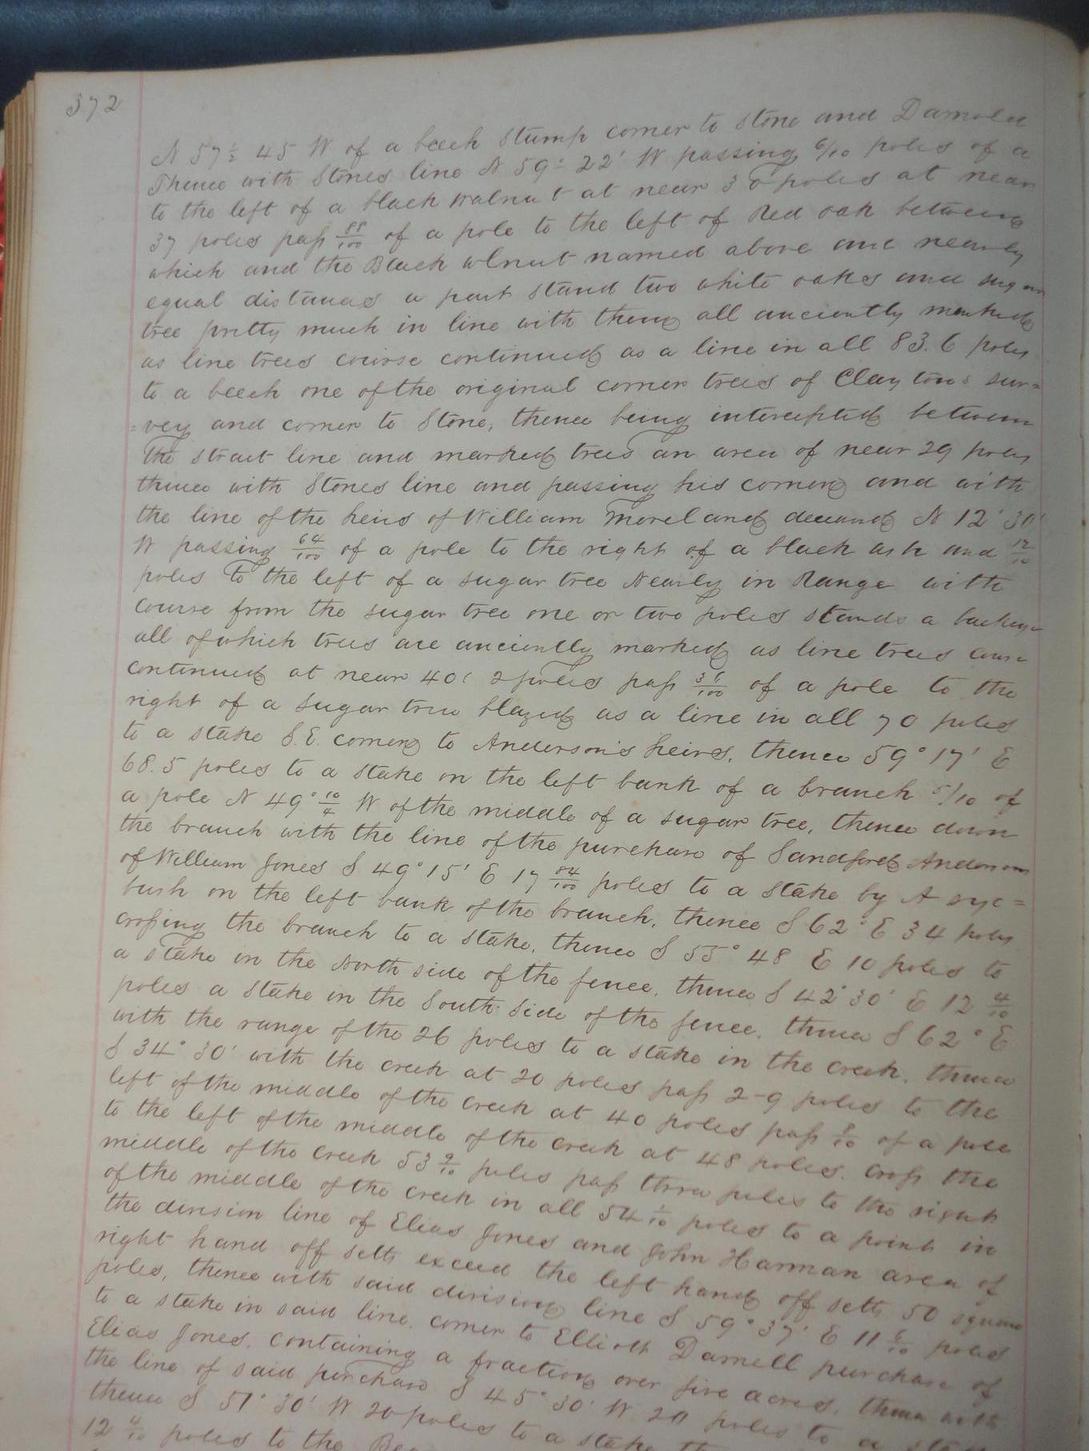 372
N 57½ 45 W of a beech Stump corner to Stone and Darnold
Thence with Stones line N 59° 22' W passing 6/10 poles of a
to the left of a black walnut at near 30 poles at near
37 poles pass 88/100 of a pole to the left of Red oak between
which and the Black wlnut named above and nearly
equal distances a part stand two white oaks and sugar
tree pretty much in line with them all anciently marked
as line trees course continued as a line in all 83.6 poles
to a beech one of the original corner trees of Claytons sur=
=vey and corner to Stone, thence being intercepted between
the strait line and marked trees an area of near 29 poles
thence with Stones line and passing his corner and with
the line of the heirs of William Moreland deceand N 12° 30'
W passing 64/100 of a pole to the right of a black ash and 12/10
poles to the left of a sugar tree Nearly in Range with
course from the sugar tree one or two poles stands a buckeye
all of which trees are anciently marked as line trees course
continued at near 40 poles pass 36/100 of a pole to the
right of a sugar tree blazed as a line in all 70 poles
to a stake S.E. corner to Anderson's heirs, thence 59° 17' E
68.5 poles to a stake on the left bank of a branch 5/10 of
a pole N 49° 10/4 W of the middle of a sugar tree, thence down
the branch with the line of the purchase of Sandford Anderson
of William Jones S 49° 15' E 17 84/100 poles to a stake by A syc=
bush on the left bank of the branch, thence S 62° E 34 poles
crossing the branch to a stake, thence S 55° 48 E 10 poles to
a stake in the North side of the fence, thence S 42° 30' E 12 4/10
poles a stake in the South side of the fence, thence S 62° E
with the range of the 26 poles to a stake in the creek, thence
S 34° 30' with the creek at 20 poles pass 2-9 poles to the
left of the middle of the creek at 40 poles pass 8/10 of a pole
to the left of the middle of the creek at 48 poles. cross the
middle of the creek 53 9/10 poles pass three poles to the right
of the middle of the creek in all 54 1/10 poles to a point in
the division line of Elias Jones and John Harman area of
right hand off setts exceed the left hand off setts 50 square
poles, thence with said division line S 59° 37' E 11 6/10 poles
to a stake in said line. corner to Elliott Darnell purchase of
Elias Jones. containing a fraction over five acres, thence with
the line of said purchase S 45° 30' W 20 poles to a stake
thence S 51° 30' W 20 poles to a stake
12 4/10 poles to the